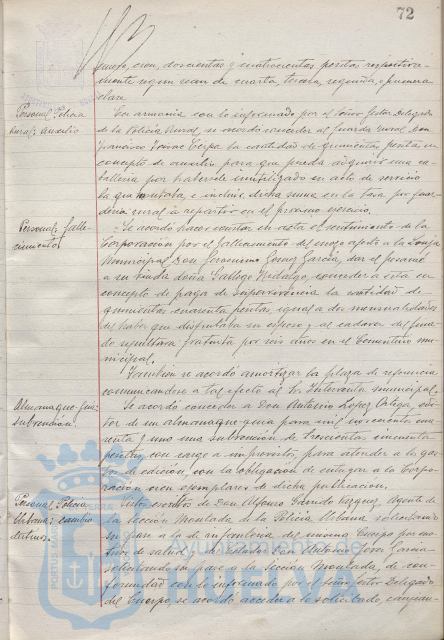 72
cien, doscientas y cuatrocientas pesetas respectiva-
mente segun sean de cuarta, tercera, segunda o primera
clase.
Personal Policia
Rural: auxilio
En armonia con lo informado por el Señor Gestor Delegado
de la Policia Rural, se acordó conceder al Guarda rural Don
Francisco la cantidad de quinientas pesetas en
concepto de auxilio para que pueda adquirir una ca-
balleria por habersele inutilizado en acto de servicio
la que montaba e incluir dicha suma en la tasa por guar-
deria rural a repartir en el proximo ejercicio.
Personal; falle-
cimiento
Se acordó hacer constar en acta el sentimiento de la
Corporación por el fallecimiento del mozo afecto a la Lonja
Municipal Don Jeronimo Gomez Garcia, dar el pesame
a su viuda doña Gallego Hidalgo, conceder a esta en
concepto de paga de supervivencia la cantidad de
quinientas cuarenta pesetas igual a dos mensualidades
del haber que disfrutaba su esposo y al cadaver del fina-
do sepultura gratuita por seis años en el Cementerio mu-
nicipal.
Tambien se acordó amortizar la plaza de referencia
comunicandose a tal efecto al Sr. Interventor municipal.
Almanaque-guia:
subvención.
Se acordó conceder a Don Antonio Lopez Ortega, edi-
tor de un almanaque-guia para mil novecientos cua-
renta y uno una subvencion de trescientas cincuenta
pesetas, con cargo a imprevistos, para atender a los gas-
tos de edición, con la obligacion de entregar a la Corpo-
ración cien ejemplares de dicha publicacion.
Personal Policia
Urbana: cambio
destinos.
Vistos escritos de Don Alfonso Garrido Vazquez, Agente de
la Sección Montada de la Policia Urbana solicitando
su pase a la de infanteria del mismo Cuerpo por mo-
tivos de salud y de Don Antonio Garcia
solicitando su pase a la Sección Montada, de con-
formidad con lo informado por el Señor Gestor Delegado
del Cuerpo, se acordó acceder a lo solicitado,